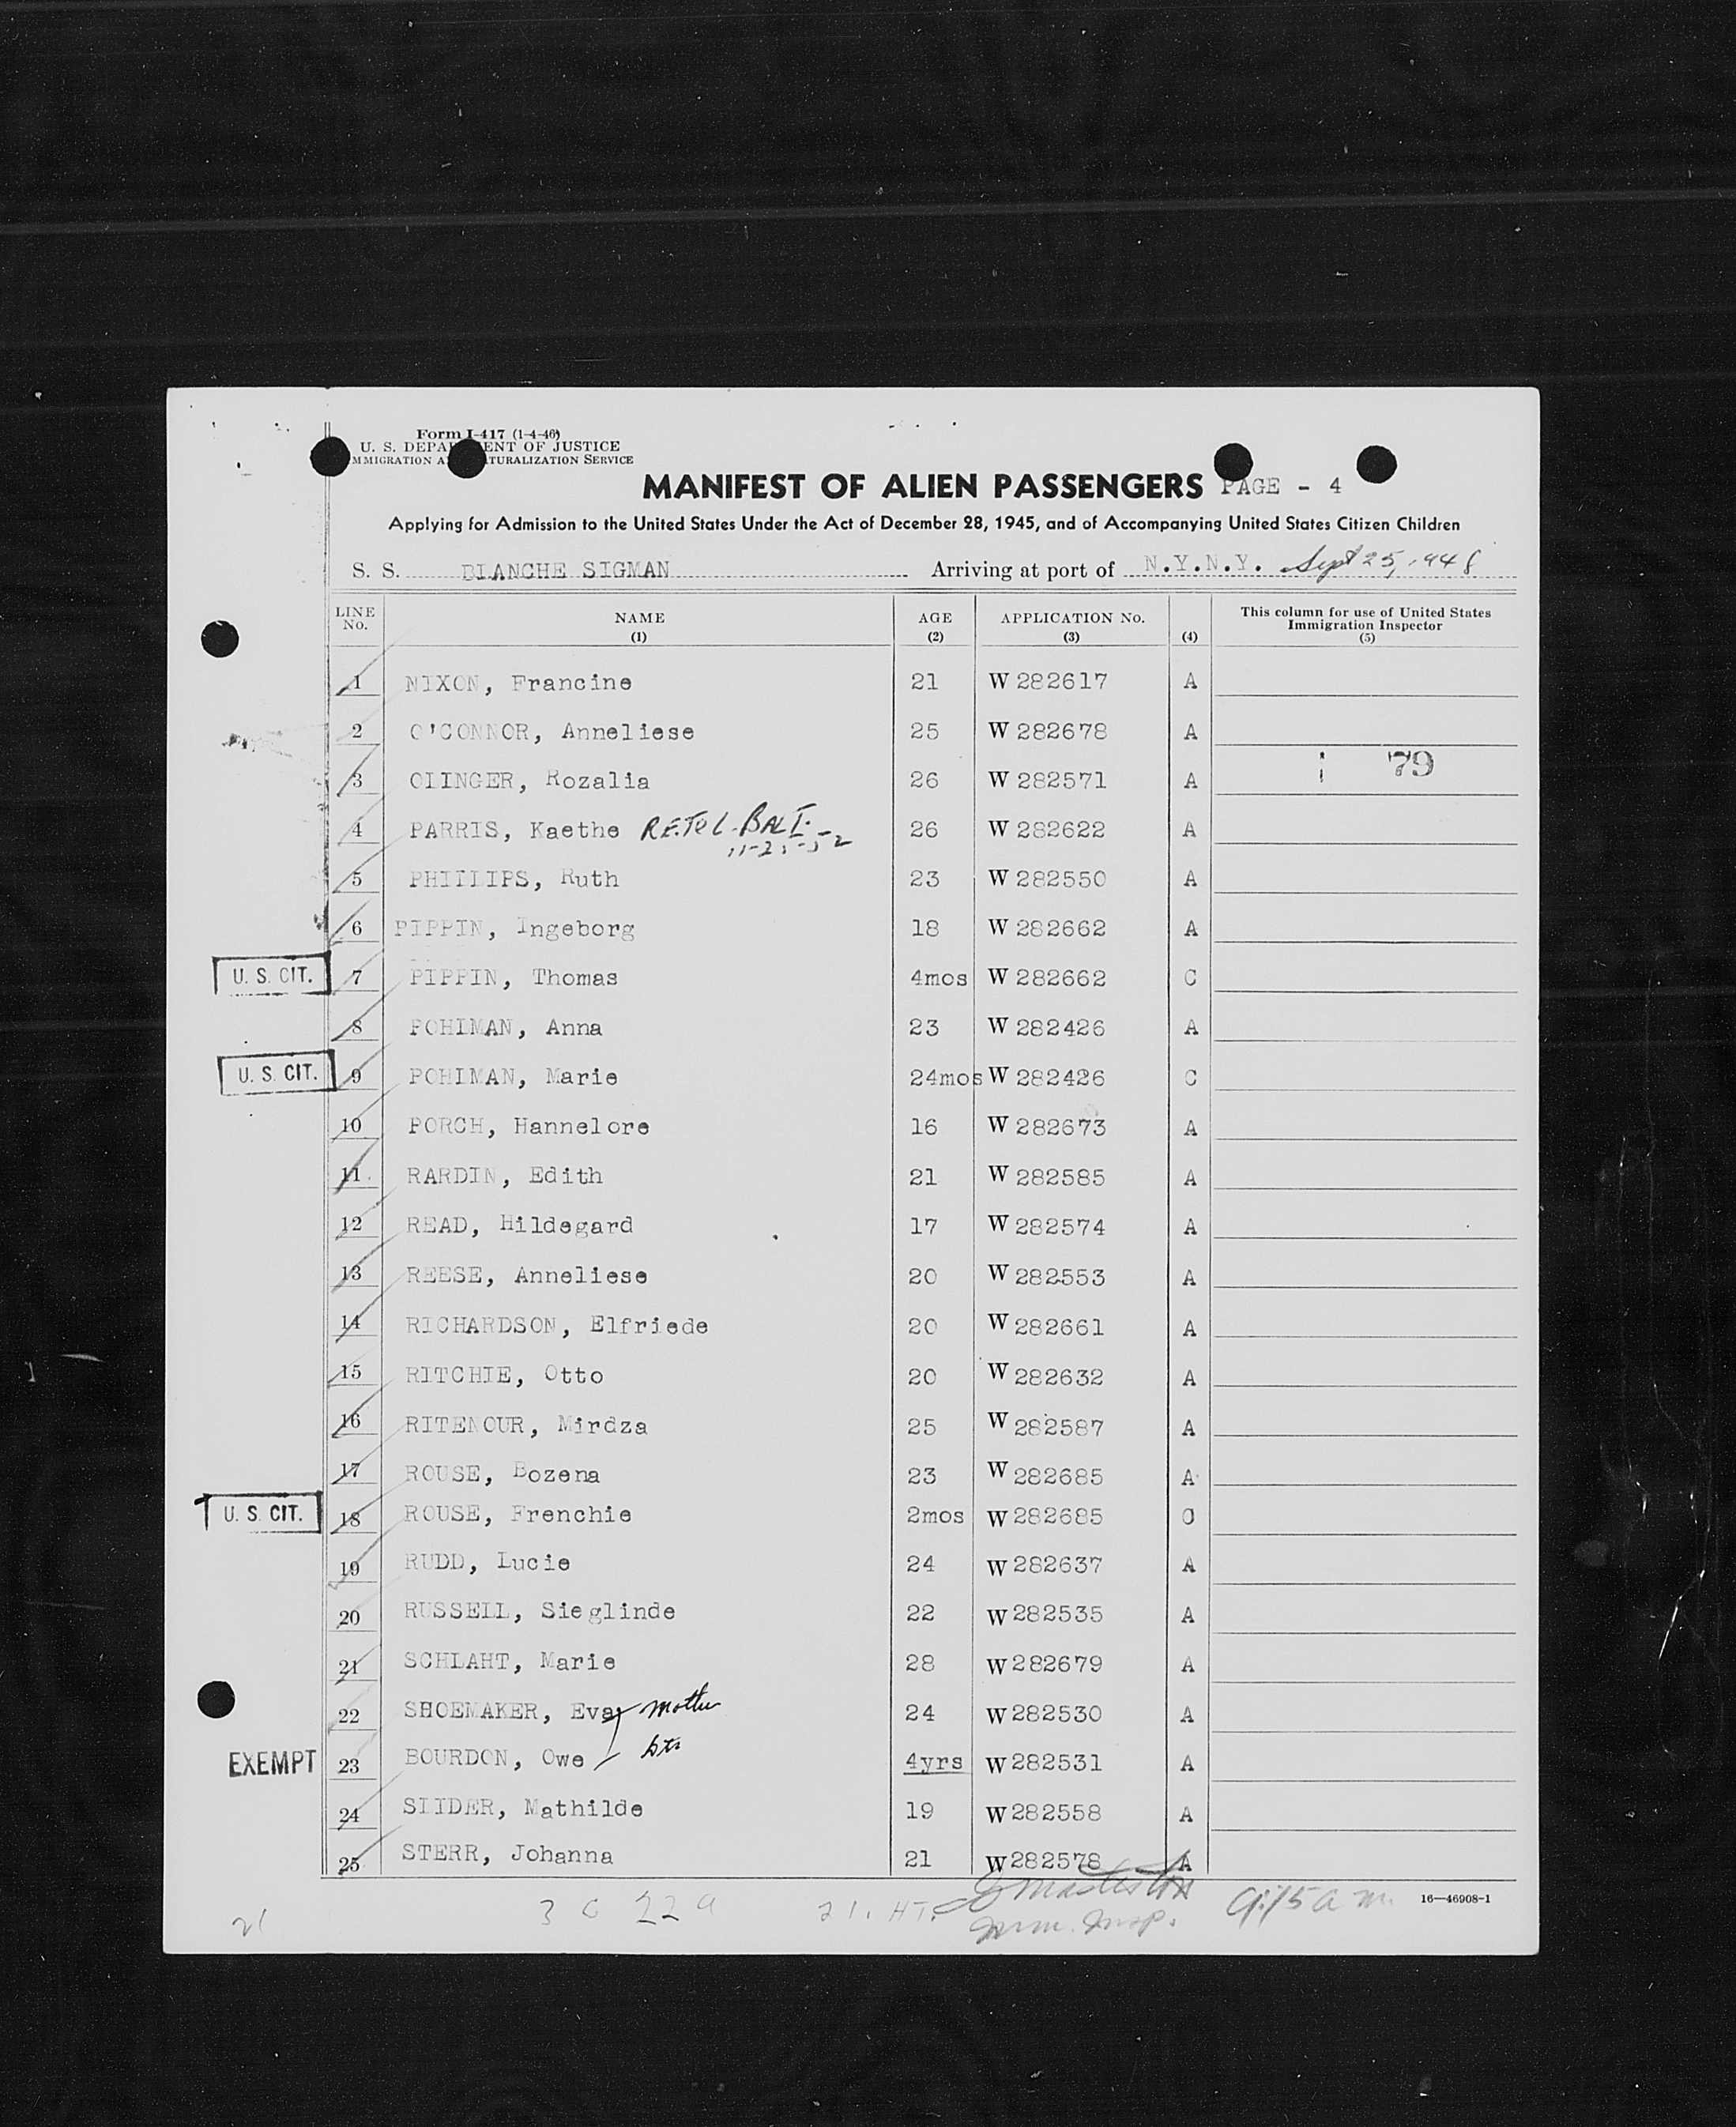 Form I-417 (1-4-46)
U. S. DEPA ENT OF JUSTICE
MMIGRATION A TURALIZATION SERVICE
MANIFEST OF ALIEN PASSENGERS PAGE - 4
Applying for Admission to the United States Under the Act of December 28, 1945, and of Accompanying United States Citizen Children
S. S. BLANCHE SIGMAN Arriving at port of N.Y.N.Y. Sept 25, 1948
LINE No. NAME (1) AGE (2) APPLICATION No. (3) (4) This column for use of United States Immigration Inspector (5)
1 NIXON, Francine 21 W 282617 A
2 O'CONNOR, Anneliese 25 W 282678 A
79
3 OLINGER, Rozalia 26 W 282571 A
4 PARRIS, Kaethe RE.Tel-BALT. 26 W 282622 A
5 PHILLIPS, Ruth 23 W 282550 A
6 PIPPIN, Ingeborg 18 W 282662 A
U. S. CIT. 7 PIPPIN, Thomas 4mos W 282662 C
8 POHLMAN, Anna 23 W 282426 A
U. S. CIT. 9 POHLMAN, Marie 24mos W 282426 C
10 PORCH, Hannelore 16 W 282673 A
11 RARDIN, Edith 21 W 282585 A
12 READ, Hildegard 17 W 282574 A
13 REESE, Anneliese 20 W 282553 A
14 RICHARDSON, Elfriede 20 W 282661 A
15 RITCHIE, Otto 20 W 282632 A
16 RITENOUR, Mirdza 25 W 282587 A
17 ROUSE, Bozena 23 W 282685 A
U. S. CIT. 18 ROUSE, Frenchie 2mos W 282685 C
19 RUDD, Lucie 24 W 282637 A
20 RUSSELL, Sieglinde 22 W 282535 A
21 SCHLAHT, Marie 28 W 282679 A
22 SHOEMAKER, Eva mother 24 W 282530 A
EXEMPT 23 BOURDON, Owe 4yrs W 282531 A
24 SLIDER, Mathilde 19 W 282558 A
25 STERR, Johanna 21 W 282578 A
21 3 C 22 A 21. HT. 9:15 a m. 16—46908-1
Imm. Insp.